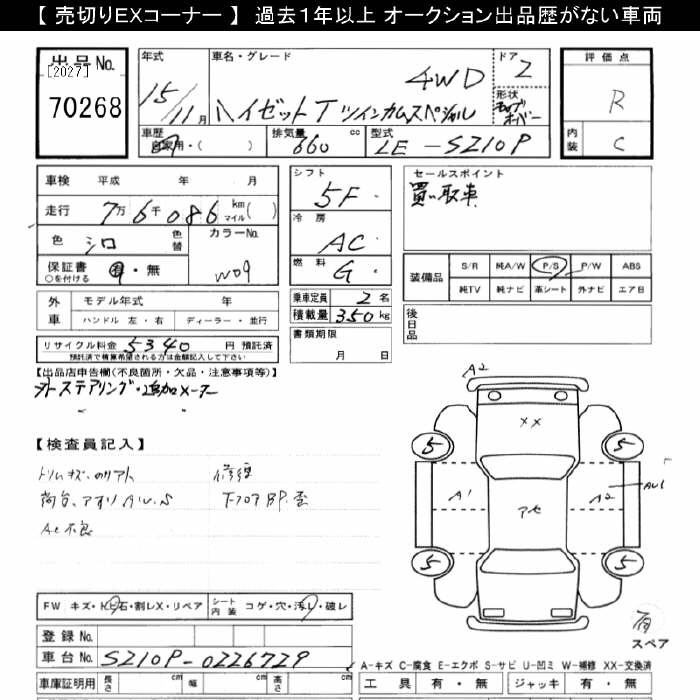 【 売切りEXコーナー 】 過去１年以上 オークション出品歴がない車両
出品No.
[2027]
70268
年式
15/11月
車名・グレード
4WD
ハイゼットT ツインカムスペシャル
ドア
2
形状
評価点
R
内装
C
車歴
自家用・( )
排気量
660 cc
型式
LE - S210P
車検 平成 年 月
走行 7万6千086 km マイル( )
色 シロ 色替
カラーNo.
W09
保証書 有・無
○を付ける
外車
モデル年式 年
ハンドル 左・右 ディーラー・並行
リサイクル料金 5340 円 預託済
預託済で積算希望される方は金額記入して下さい
シフト
5F
冷房
AC
燃料
G
乗車定員 2名
積載量 350kg
書類期限
月 日
セールスポイント
買い取車
装備品
S/R 純A/W P/S P/W ABS
純TV 純ナビ 革シート 外ナビ エア日
後日品
【出品店申告欄(不良箇所・欠品・注意事項等)】
社外ステアリング・追加メーター
【検査員記入】
荷台、アオリAW.S
修復
AC不良
A2
XX
5
5
A1
A2
5
5
スペア
FW キズ・ヒビ・石・割レX・リペア
シート内装 コゲ・穴・汚レ・破レ
登録No.
車台No. S210P-0226729
A-キズ C-腐食 E-エクボ S-サビ U-凹ミ W-補修 XX-交換済
車庫証明用 長さ cm 幅 cm 高さ cm
工具 有・無 ジャッキ 有・無